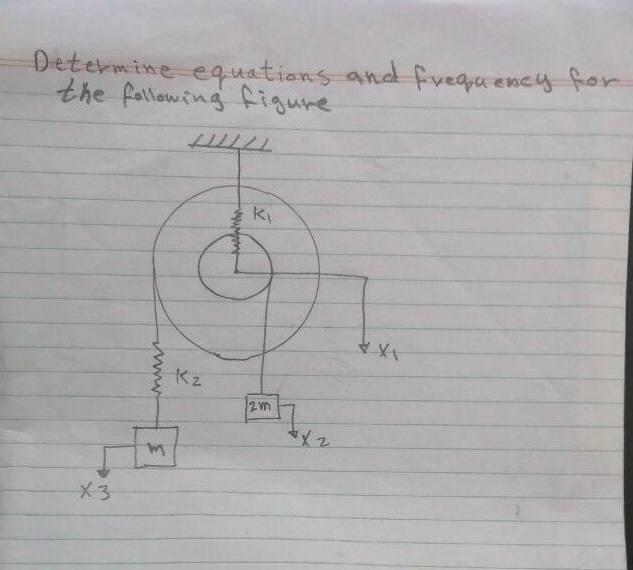 Determine equations and frequency for
the following figure
K1
X1
K2
2m
X2
m
X3